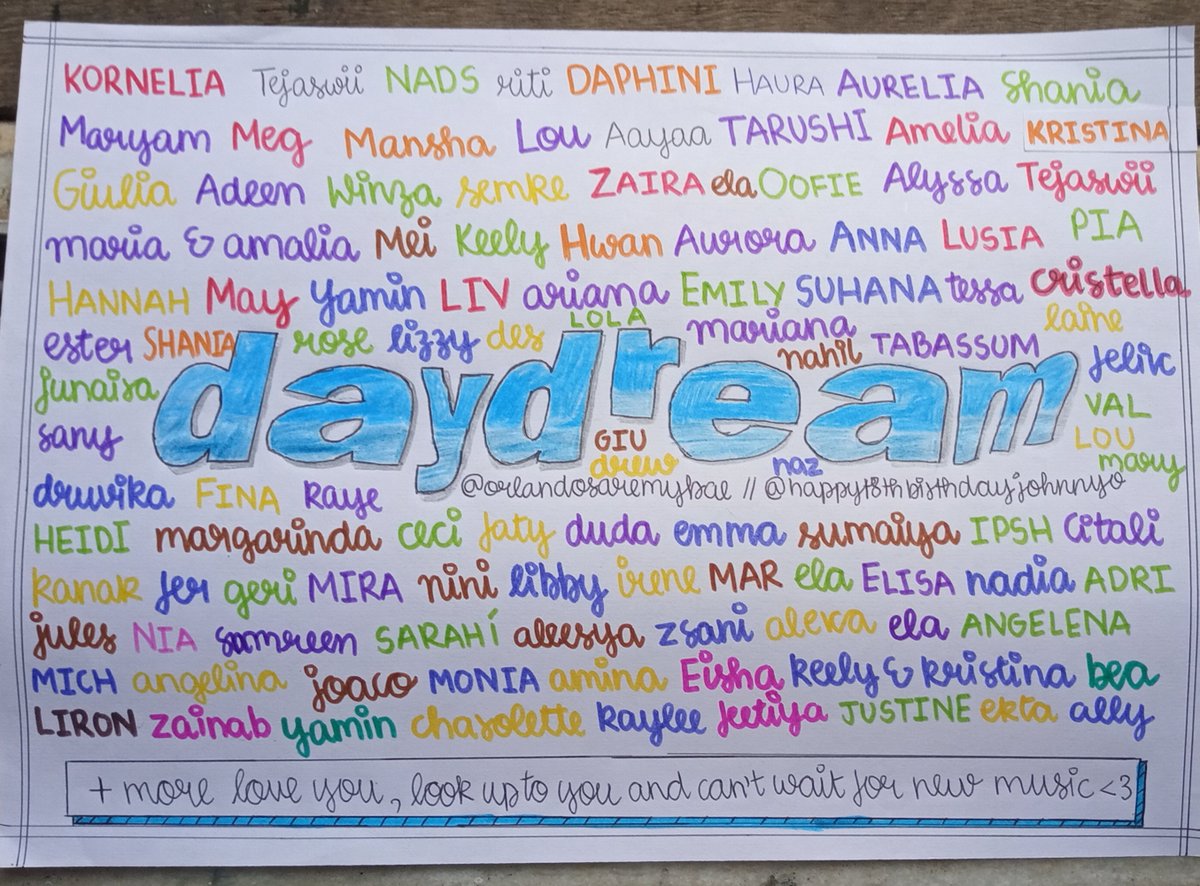 KORNELIA Tejaswii NADS riti DAPHINI HAURA AURELIA Shania
Maryam Meg Mansha Lou Aayaa TARUSHI Amelia KRISTINA
Giulia Adeen Winza semre ZAIRA ela OOFIE Alyssa Tejaswii
maria & amalia Mei Keely Hwan Aurora ANNA LUSIA PIA
HANNAH May yamin LIV ariana EMILY SUHANA tessa cristella
ester SHANIA rose lizzy des LOLA mariana nahil TABASSUM laine
junaisa daydream jelic
sany GIU VAL
drew naz LOU
mary
druvika FINA RAYE @orlandosaremybae // @happy18thbirthdayjohnnyo
HEIDI margarinda ceci jaty duda emma sumaiya IPSH Citali
kanak jer geri MIRA nini libby irene MAR ela ELISA nadia ADRI
jules NIA samreen SARAHÍ aleesya zsani alexa ela ANGELENA
MICH angelina joaco MONIA amina Eisha keely & kristina bea
LIRON zainab yamin charolette kaylee jeetiya JUSTINE ekta ally
+ more love you, look up to you and can't wait for new music <3